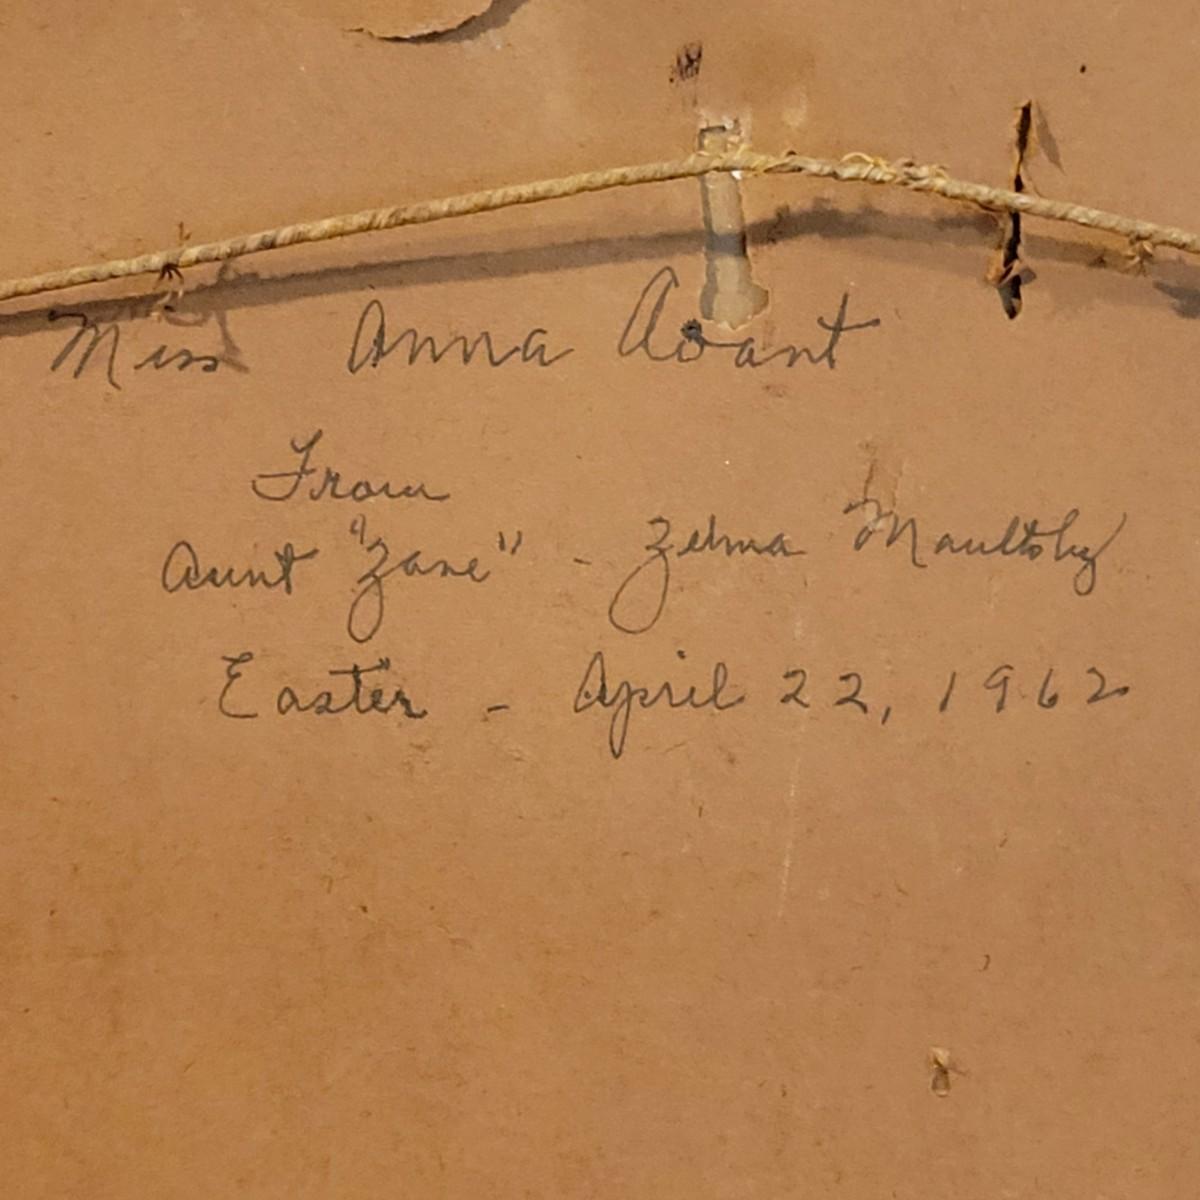 Miss Anna Avant
From
Aunt "Zane" - Zelma Maultsby
Easter - April 22, 1962